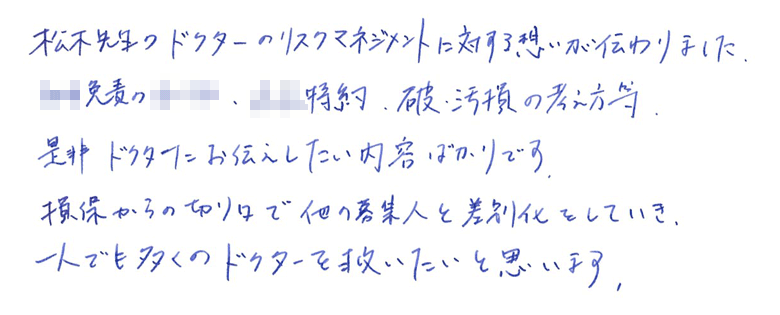 松木先生のドクターのリスクマネジメントに対する想いが伝わりました.
免責の 、 特約、破・汚損の考え方等.
是非ドクターにお伝えしたい内容ばかりです.
損保からの切り口で他の募集人と差別化をしていき、
一人でも多くのドクターを救いたいと思います.